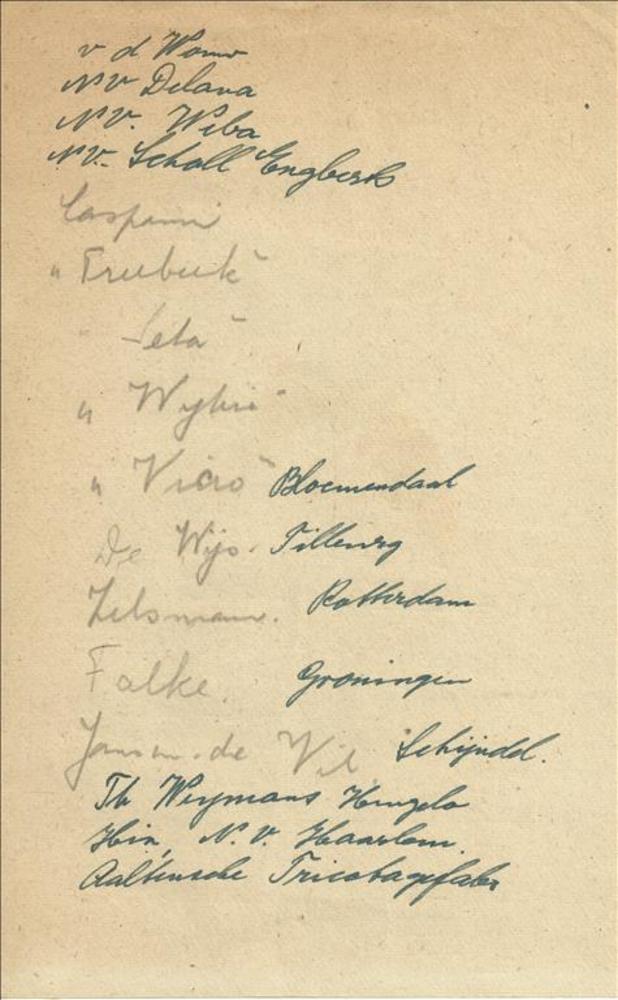 v d
NV Delana
NV. Weba
NV. Schall Engberts
Caspami
" Freebeek "
" Seta "
" "
" Vicro " Bloemendaal
De Wijs. Tilburg
Zilsman. Rotterdam
Falke. Groningen
Jansen. de Wil Schijndel.
Th Weymans Hengelo
Hin, N.V. Haarlem.
Aaltensche Tricotagefabr